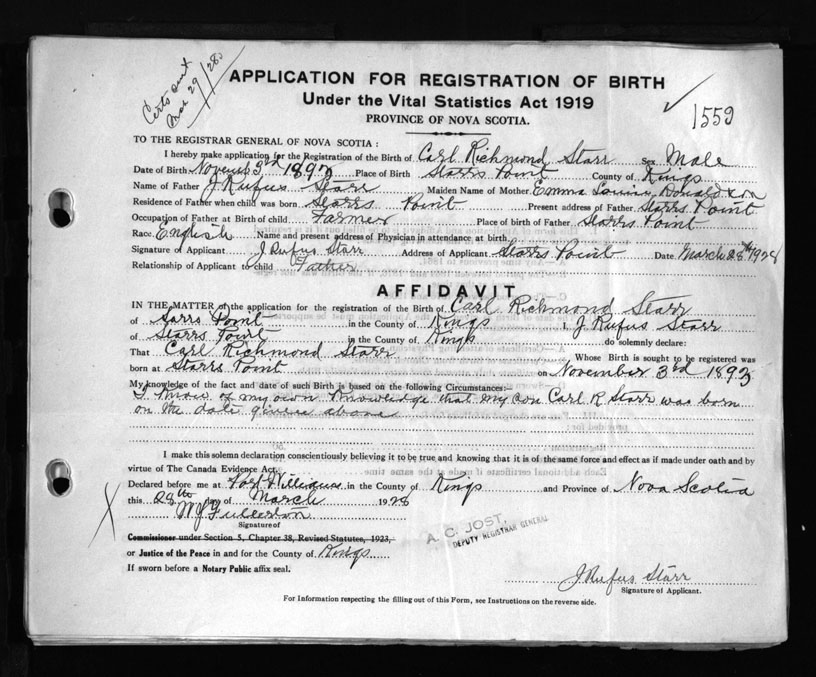 Certs sent
Mar 29/28
APPLICATION FOR REGISTRATION OF BIRTH
Under the Vital Statistics Act 1919
PROVINCE OF NOVA SCOTIA.
1559
TO THE REGISTRAR GENERAL OF NOVA SCOTIA:
I hereby make application for the Registration of the Birth of Carl Richmond Starr Sex Male
Date of Birth November 3rd 1893 Place of Birth Starrs Point County of Kings
Name of Father J. Rufus Starr Maiden Name of Mother Emma Louise Donaldson
Residence of Father when child was born Starrs Point Present address of Father Starrs Point
Occupation of Father at Birth of child Farmer Place of birth of Father Starrs Point
Race English Name and present address of Physician in attendance at birth
Signature of Applicant J Rufus Starr Address of Applicant Starrs Point Date March 28th 1928
Relationship of Applicant to child Father
AFFIDAVIT
IN THE MATTER of the application for the registration of the Birth of Carl Richmond Starr
of Starrs Point in the County of Kings I, J Rufus Starr
of Starrs Point in the County of Kings do solemnly declare:
That Carl Richmond Starr Whose Birth is sought to be registered was
born at Starrs Point on November 3rd 1893
My knowledge of the fact and date of such Birth is based on the following Circumstances:—
I know of my own knowledge that my son Carl R Starr was born
on the date given above
I make this solemn declaration conscientiously believing it to be true and knowing that it is of the same force and effect as if made under oath and by
virtue of The Canada Evidence Act.
Declared before me at Port Williams in the County of Kings and Province of Nova Scotia
this 28th day of March 1928
W J Fullerton
Signature of
Commissioner under Section 5, Chapter 38, Revised Statutes, 1923,
or Justice of the Peace in and for the County of Kings
If sworn before a Notary Public affix seal.
A. C. JOST,
DEPUTY REGISTRAR GENERAL
J Rufus Starr
Signature of Applicant.
For Information respecting the filling out of this Form, see Instructions on the reverse side.